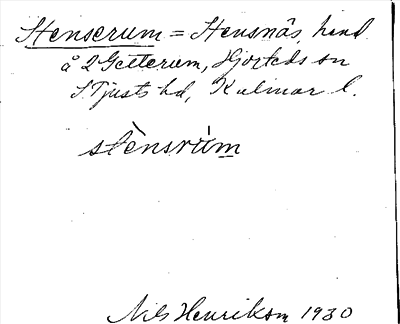 Stenserum = Stensnäs, hmd
å 2 Getterum, Hjorteds sn
S Tjusts hd, Kalmar l.
stènsrúm
Nils Henrikson 1930